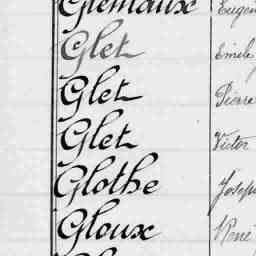 Glemaux Eugène
Glet Emile
Glet Pierre
Glet Victor
Glothe Joseph
Gloux René